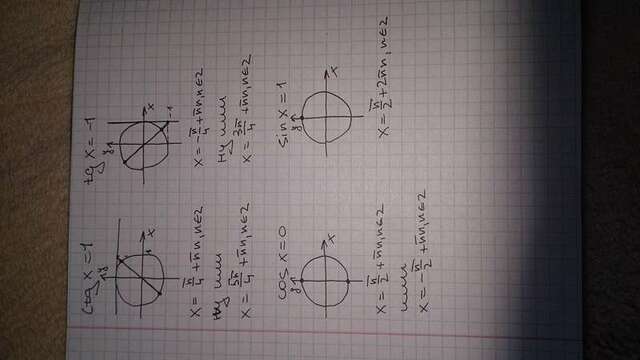 ctg x = 1
y
x
1
x = π/4 + πn, n∈Z
ну или
x = 5π/4 + πn, n∈Z
tg x = -1
y
x
-1
x = -π/4 + πn, n∈Z
ну или
x = 3π/4 + πn, n∈Z
cos x = 0
y
x
x = π/2 + πn, n∈Z
или
x = -π/2 + πn, n∈Z
sin x = 1
y
x
x = π/2 + 2πn, n∈Z